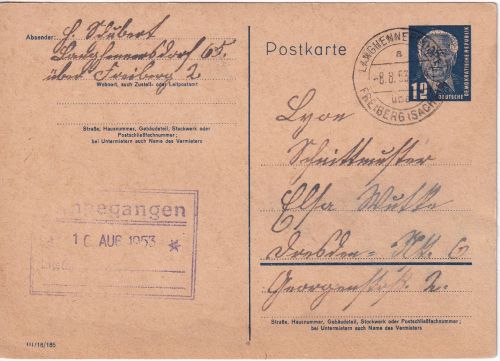 Absender: H. Schubert
Langhennersdorf 65.
über Freiberg 2
Wohnort, auch Zustell- oder Leitpostamt
Straße, Hausnummer, Gebäudeteil, Stockwerk oder
Postschließfachnummer;
bei Untermietern auch Name des Vermieters
ngegangen
* 10 AUG 1953 *
III/18/185
Postkarte
LANGHENNERSDORF
a
-8.8.53
über
FREIBERG (SACHS)
12
DEUTSCHE
DEMOKRATISCHE REPUBLIK
Lyon
Schnittmuster
Elsa Wutke
Dresden-
Georgenstr. 2.
Straße, Hausnummer, Gebäudeteil, Stockwerk oder Postschließfachnummer;
bei Untermietern auch Name des Vermieters